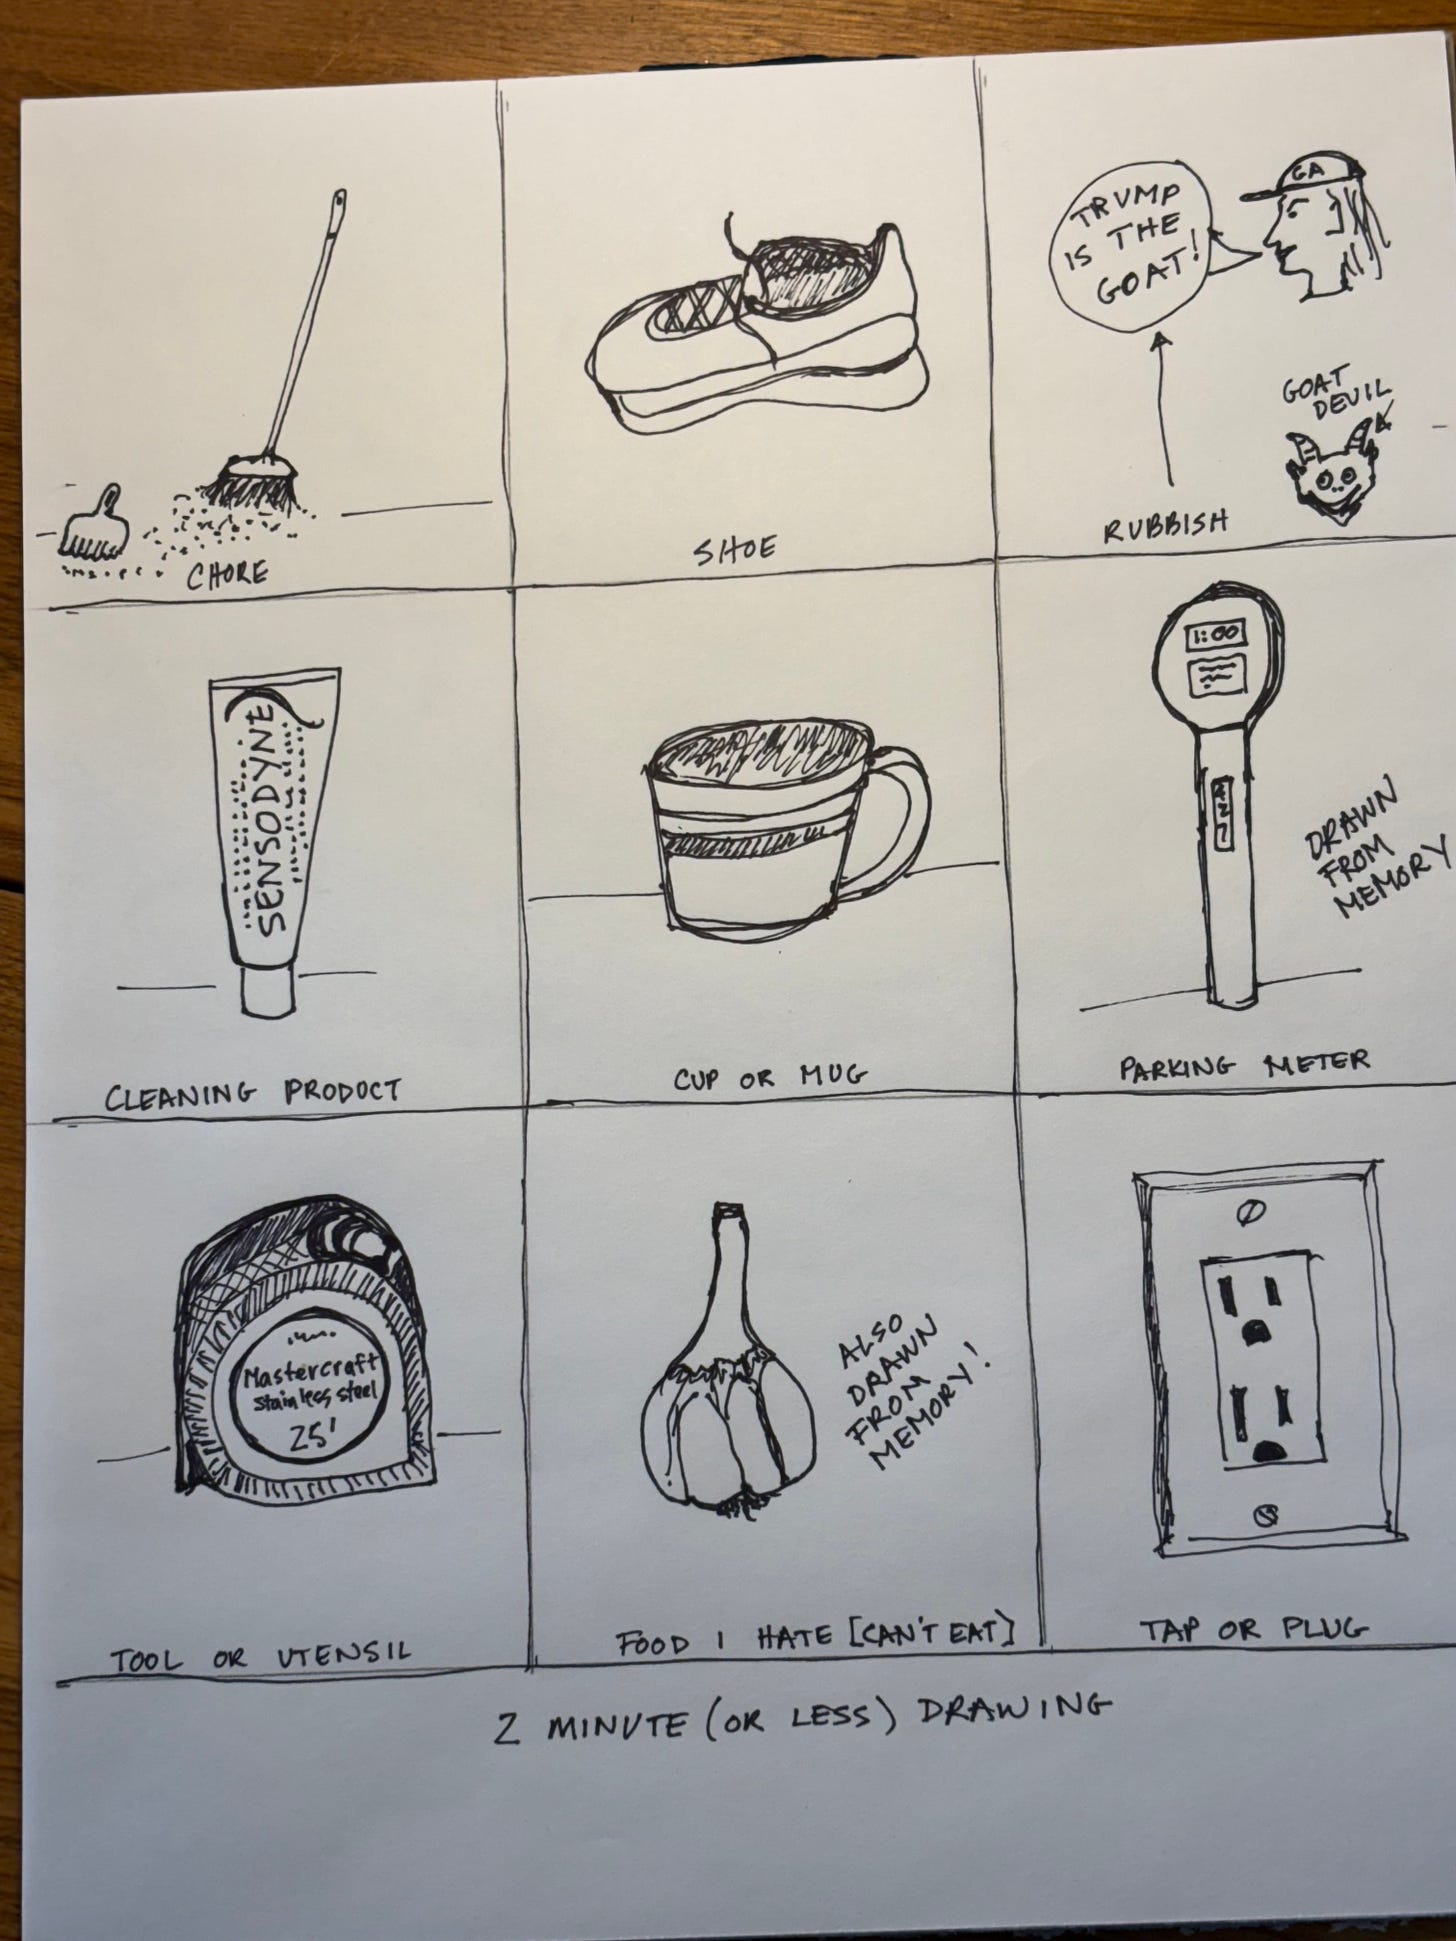 CHORE
SHOE
TRUMP
IS THE
GOAT!
GA
GOAT
DEVIL
RUBBISH
SENSODYNE
CLEANING PRODUCT
CUP OR MUG
1:00
DRAWN
FROM
MEMORY
PARKING METER
Mastercraft
stainless steel
25'
TOOL OR UTENSIL
ALSO
DRAWN
FROM
MEMORY!
FOOD I HATE [CAN'T EAT]
TAP OR PLUG
2 MINUTE (OR LESS) DRAWING